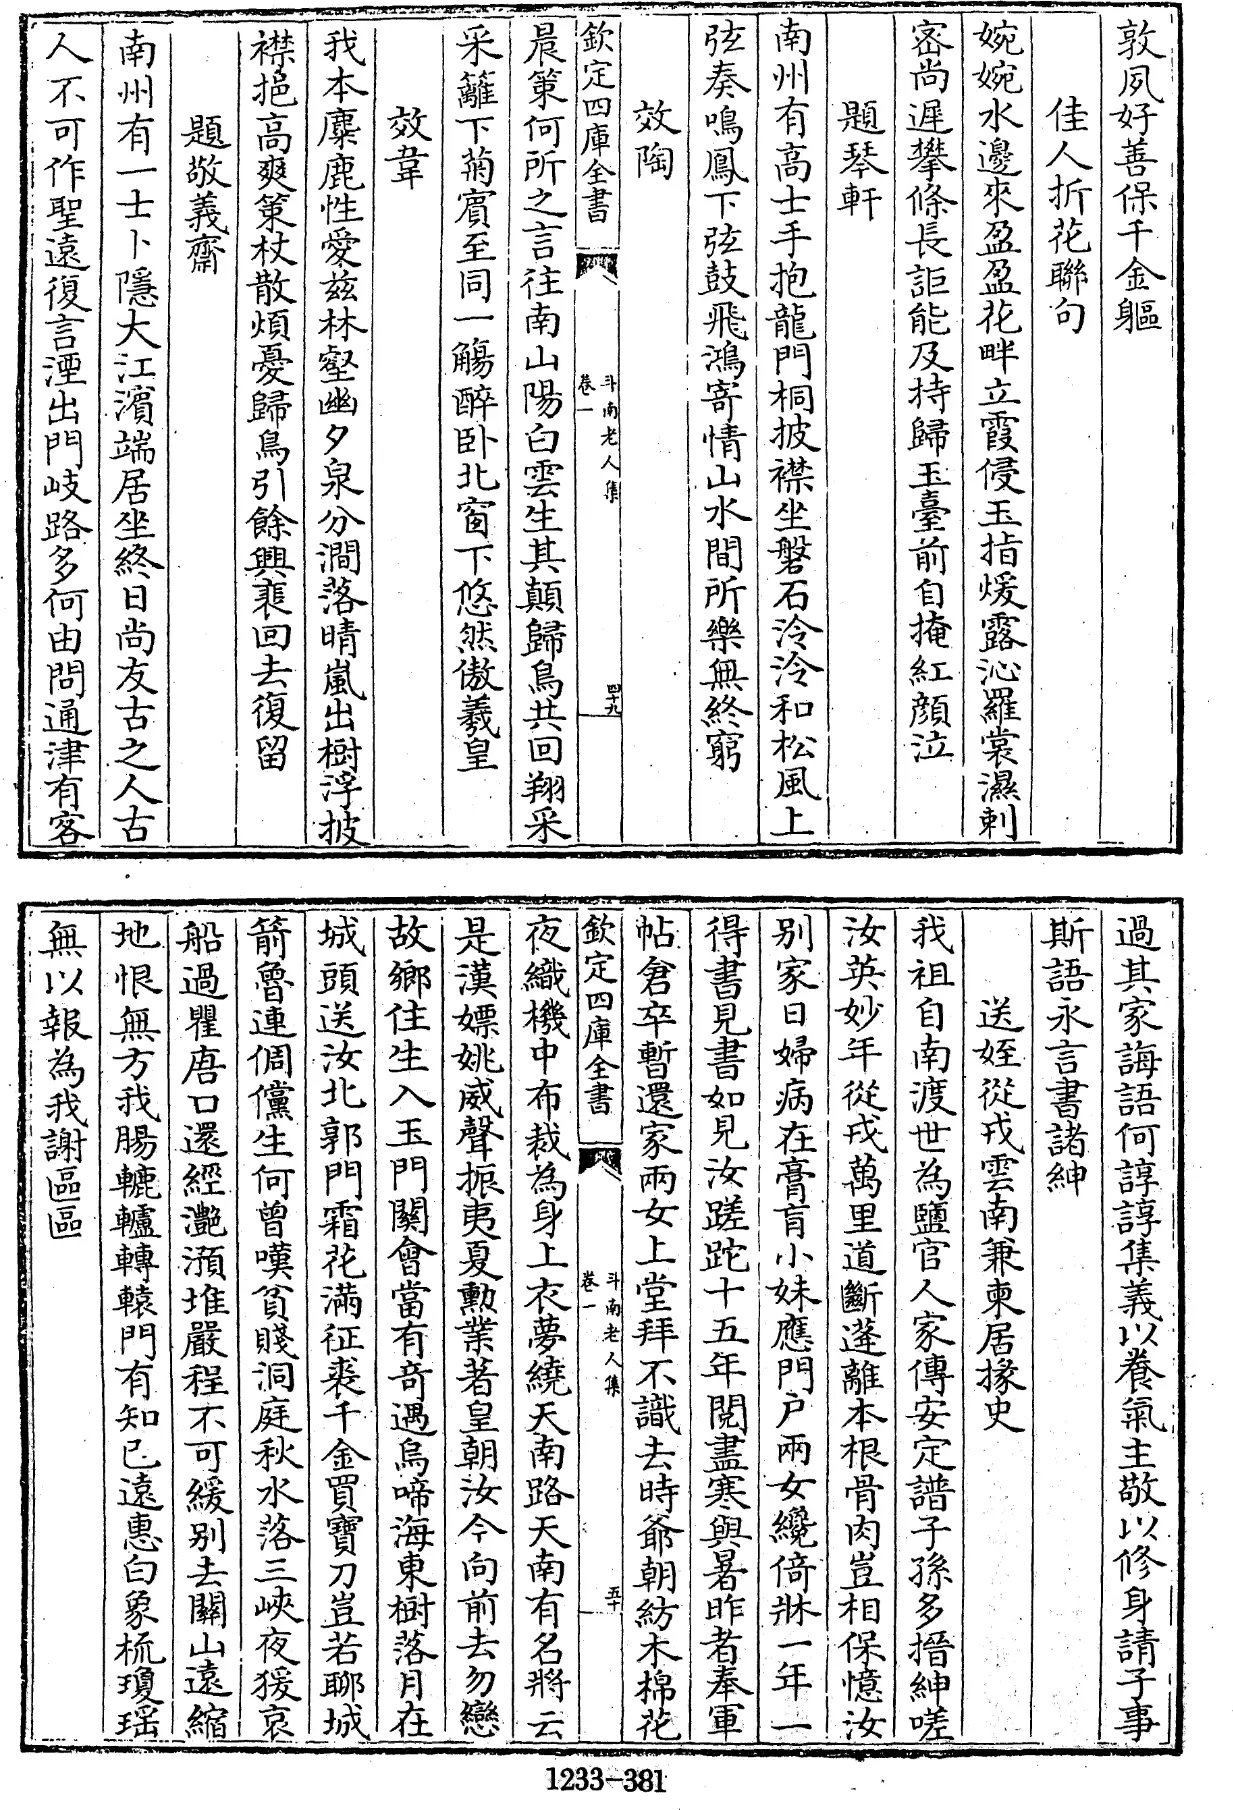 敦夙好善保千金軀
佳人折花聯句
婉婉水邊來盈盈花畔立霞侵玉指煖露沁羅裳濕刺
密尚遲攀條長詎能及持歸玉臺前自掩紅顔泣
題琴軒
南州有高士手抱龍門桐披襟坐磐石泠泠和松風上
弦奏鳴鳳下弦鼓飛鴻寄情山水間所樂無終窮
效陶
欽定四庫全書
斗南老人集
卷一
四十九
晨策何所之言往南山陽白雲生其顛歸鳥共回翔采
采籬下菊賓至同一觴醉卧北窗下悠然傲羲皇
效韋
我本麋鹿性愛兹林壑幽夕泉分澗落晴嵐出樹浮披
襟挹高爽策杖散煩憂歸鳥引餘興裵回去復留
題敬義齋
南州有一士卜隱大江濱端居坐終日尚友古之人古
人不可作聖遠復言湮出門岐路多何由問通津有客
過其家誨語何諄諄集義以養氣主敬以修身請子事
斯語永言書諸紳
送姪從戎雲南兼柬居掾史
我祖自南渡世為鹽官人家傳安定譜子孫多搢紳嗟
汝英妙年從戎萬里道斷蓬離本根骨肉豈相保憶汝
别家日婦病在膏肓小妹應門户兩女纔倚牀一年一
得書見書如見汝蹉跎十五年閱盡寒與暑昨者奉軍
帖倉卒暫還家兩女上堂拜不識去時爺朝紡木棉花
欽定四庫全書
斗南老人集
卷一
五十
夜織機中布裁為身上衣夢繞天南路天南有名將云
是漢嫖姚威聲振夷夏勳業著皇朝汝今向前去勿戀
故鄉住生入玉門關會當有奇遇烏啼海東樹落月在
城頭送汝北郭門霜花滿征裘千金買寶刀豈若聊城
箭魯連倜儻生何曾嘆貧賤洞庭秋水落三峽夜猨哀
船過瞿唐口還經灧澦堆嚴程不可緩别去關山遠縮
地恨無方我腸轆轤轉轅門有知己遠惠白象梳瓊瑶
無以報為我謝區區
1233-381